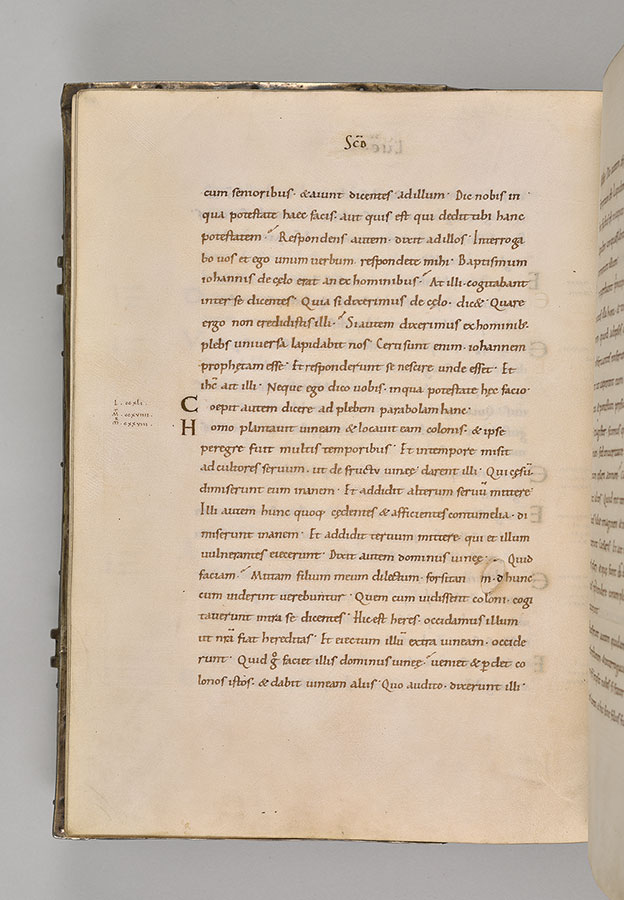 Scd
cum senioribus· & aiunt dicentes ad illum· Dic nobis in
qua potestate haec facis· aut quis est qui dedit tibi hanc
potestatem· Respondens autem· dixit ad illos· Interroga
bo uos et ego unum uerbum· respondete mihi· Baptismum
iohannis de cęlo erat an ex hominibus· At illi· cogitabant
inter se dicentes· Quia si dixerimus de cęlo· dic& Quare
ergo non credidistis illi· Si autem dixerimus ex hominib·
plebs uniuersa lapidabit nos· Certi sunt enim· iohannem
prophetam esse· Et responderunt se nescire unde esset· Et
ihc̄ ait illi· Neque ego dico uobis· in qua potestate hęc facio·
C oepit autem dicere ad plebem parabolam hanc·
L· ccxli·
H omo plantauit uineam & locauit eam colonis· & ipse
M̄· ccxviiii·
M̄· cxxviii·
peregre fuit multis temporibus· Et in tempore misit
ad cultores seruum· ut de fructu uineę darent illi· Qui cęsū·
dimiserunt eum inanem· Et addidit alterum seruū mittere·
Illi autem hunc quoq; cędentes & afficientes contumelia· di
miserunt inanem· Et addidit tertium mittere· qui et illum
uulnerantes eiecerunt· Dixit autem dominus uineę· Quid
faciam· Mittam filium meum dilectum· forsitan hunc
cum uiderint uerebuntur· Quem cum uidissent coloni· cogi
tauerunt intra se dicentes· Hic est heres· occidamus illum
ut nrā fiat hereditas· Et eiectum illū extra uineam· occide
runt· Quid gͦ faciet illis dominus uineę· ueniet & p̱det co
lonos istos· & dabit uineam aliis· Quo audito· dixerunt illi·